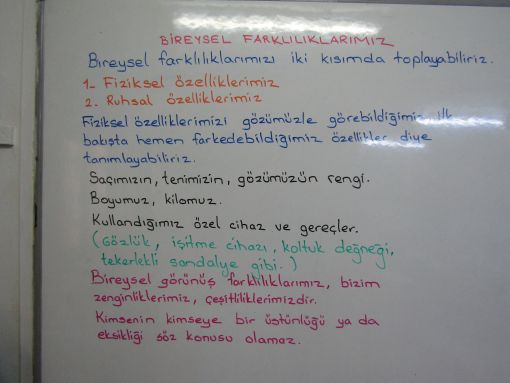 BİREYSEL FARKLILIKLARIMIZ
Bireysel farklılıklarımızı iki kısımda toplayabiliriz.
1- Fiziksel özelliklerimiz
2. Ruhsal özelliklerimiz
Fiziksel özelliklerimizi gözümüzle görebildiğimiz, ilk
bakışta hemen farkedebildiğimiz özellikler diye
tanımlayabiliriz.
Saçımızın, tenimizin, gözümüzün rengi.
Boyumuz, kilomuz.
Kullandığımız özel cihaz ve gereçler.
(Gözlük, işitme cihazı, koltuk değneği,
tekerlekli sandalye gibi.)
Bireysel görünüş farklılıklarımız, bizim
zenginliklerimiz, çeşitliliklerimizdir.
Kimsenin kimseye bir üstünlüğü ya da
eksikliği söz konusu olamaz.